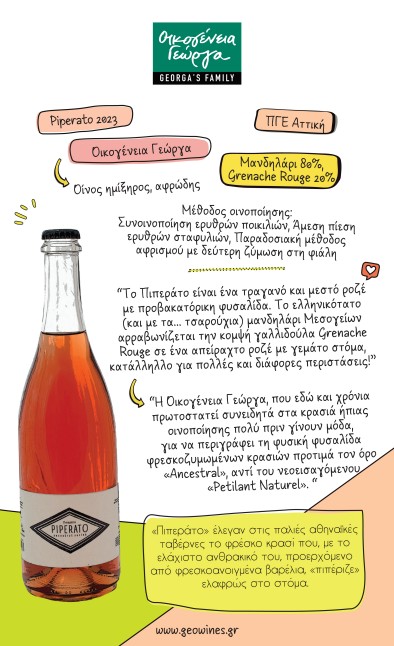 Οικογένεια
Γεώργα
GEORGA'S FAMILY
Piperato 2023
ΠΓΕ Αττική
Οικογένεια Γεώργα
Μανδηλάρι 80%,
Grenache Rouge 20%
Οίνος ημίξηρος, αφρώδης
Μέθοδος οινοποίησης:
Συνοινοποίηση ερυθρών ποικιλιών, Άμεση πίεση
ερυθρών σταφυλιών, Παραδοσιακή μέθοδος
αφρισμού με δεύτερη ζύμωση στη φιάλη
“Το Πιπεράτο είναι ένα τραγανό και μεστό ροζέ
με προβακατόρικη φυσαλίδα. Το ελληνικότατο
(και με τα... τσαρούχια) μανδηλάρι Μεσογείων
αρραβωνίζεται την κομψή γαλλιδούλα Grenache
Rouge σε ένα απείραχτο ροζέ με γεμάτο στόμα,
κατάλληλλο για πολλές και διάφορες περιστάσεις!”
“Η Οικογένεια Γεώργα, που εδώ και χρόνια
πρωτοστατεί συνειδητά στα κρασιά ήπιας
οινοποίησης πολύ πριν γίνουν μόδα,
για να περιγράψει τη φυσική φυσαλίδα
φρεσκοζυμωμένων κρασιών προτιμά τον όρο
«Ancestral», αντί του νεοεισαγόμενου
«Petilant Naturel». “
PIPERATO
«Πιπεράτο» έλεγαν στις παλιές αθηναϊκές
ταβέρνες το φρέσκο κρασί που, με το
ελάχιστο ανθρακικό του, προερχόμενο
από φρεσκοανοιγμένα βαρέλια, «πιπέριζε»
ελαφρώς στο στόμα.
www.geowines.gr